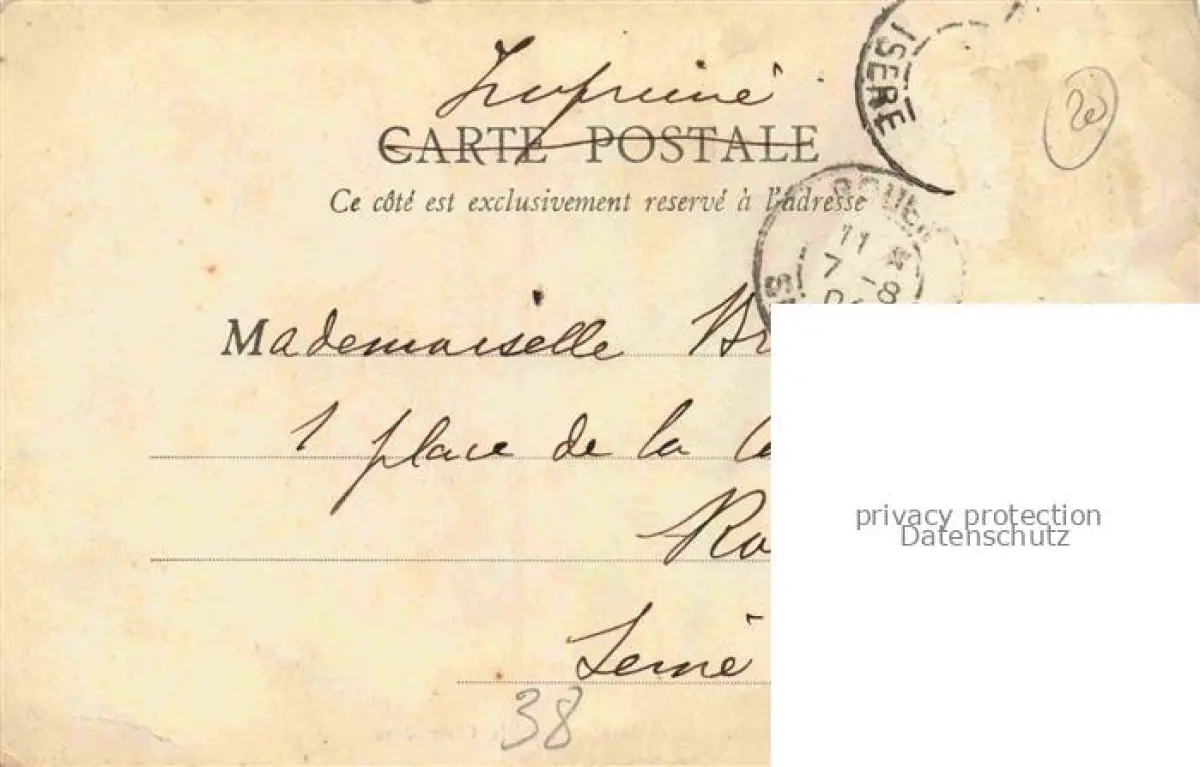 ISERE
20
Imprimé
CARTE POSTALE
Ce côté est exclusivement reservé à l'adresse
ROUEN
11
7 -8
Mademoiselle
1 place de la
Seine
38
privacy protection
Datenschutz